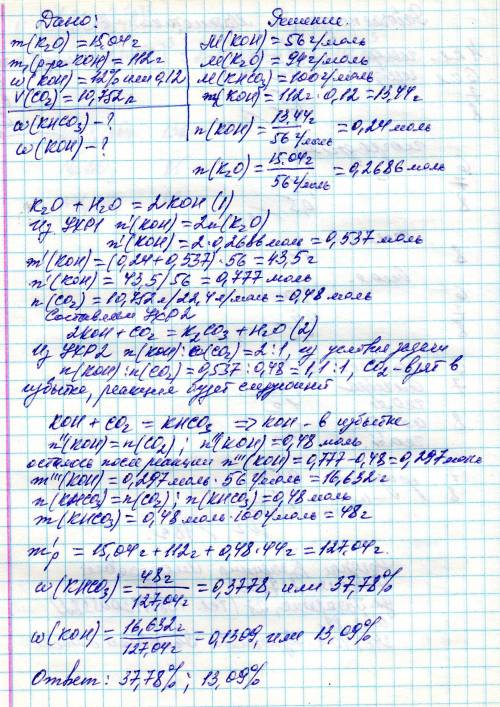 Дано:
m(K₂O) = 15,04 г
m₁(р-ра KOH) = 112 г
ω(KOH) = 12% или 0,12
V(CO₂) = 10,752 л
ω(KHCO₃) - ?
ω(KOH) - ?
Решение.
M(KOH) = 56 г/моль
M(K₂O) = 94 г/моль
M(KHCO₃) = 100 г/моль
m(KOH) = 112 г · 0,12 = 13,44 г
n(KOH) = 13,44 г / 56 г/моль = 0,24 моль
n(K₂O) = 15,04 г / 56 г/моль = 0,2686 моль
K₂O + H₂O = 2KOH (1)
Из УХР1 n'(KOH) = 2n(K₂O)
n'(KOH) = 2 · 0,2686 моль = 0,537 моль
m'(KOH) = (0,24 + 0,537) · 56 = 43,5 г
n'(KOH) = 43,5/56 = 0,777 моль
n(CO₂) = 10,752 л/22,4 л/моль = 0,48 моль
Составляем УХР2
2KOH + CO₂ = K₂CO₃ + H₂O (2)
Из УХР2 n(KOH) : n(CO₂) = 2:1, из условия задачи
n(KOH) : n(CO₂) = 0,537 : 0,48 = 1,1 : 1, CO₂ - взят в
избытке, реакция будет следующей
KOH + CO₂ = KHCO₃ ⇒ KOH - в избытке
n''(KOH) = n(CO₂); n''(KOH) = 0,48 моль
осталось после реакции n'''(KOH) = 0,777 - 0,48 = 0,297 моль
m'''(KOH) = 0,297 моль · 56 г/моль = 16,632 г
n(KHCO₃) = n(CO₂); n(KHCO₃) = 0,48 моль
m(KHCO₃) = 0,48 моль · 100 г/моль = 48 г
m'р = 15,04 г + 112 г + 0,48 · 44 г = 127,04 г.
ω(KHCO₃) = 48 г / 127,04 г = 0,3778, или 37,78%
ω(KOH) = 16,632 г / 127,04 г = 0,1309, или 13,09%
Ответ: 37,78%; 13,09%